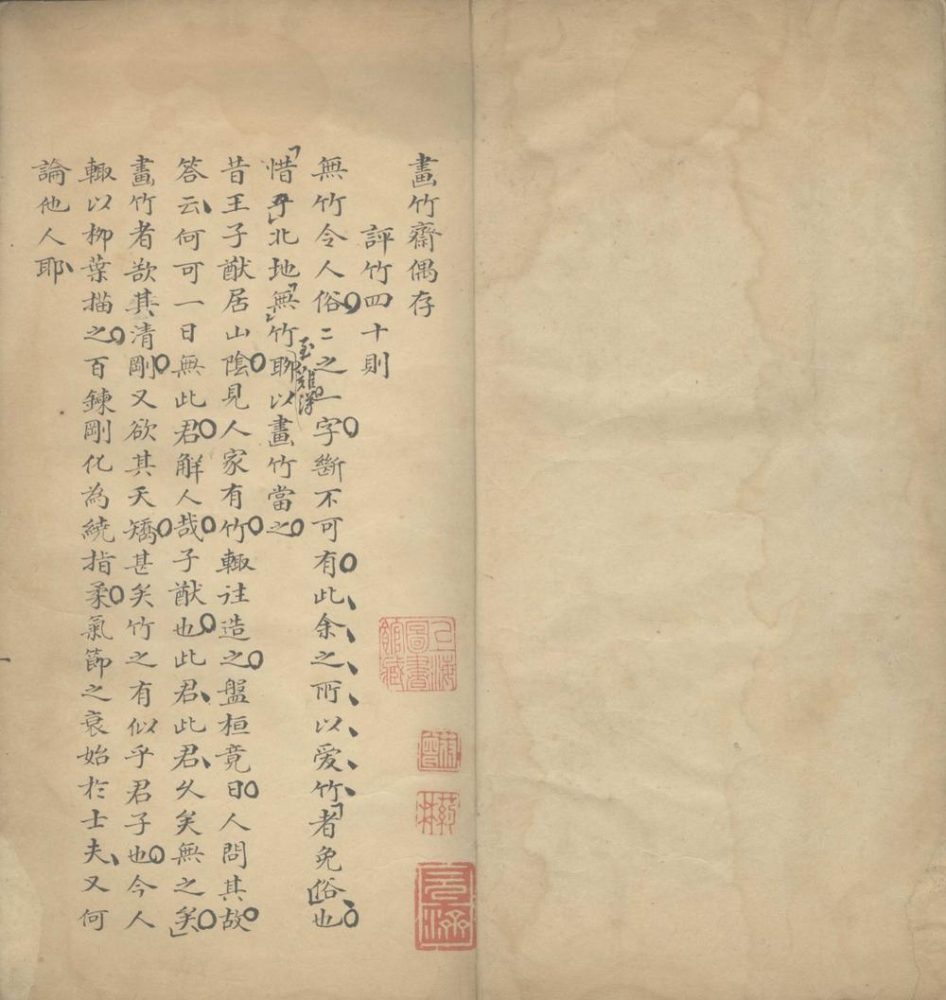 畫竹齋偶存
評竹四十則
無竹令人俗。二之一字。斷不可有。此余之所以愛竹者免俗也。
惜乎北地無竹聊以畫竹當之。
昔王子猷居山陰。見人家有竹。輒往造之。盤桓竟日。人問其故。
答云、何可一日無此君。解人哉。子猷也。此君、此君、久矣無之矣。
畫竹者欲其清剛。又欲其夭矯。甚矣竹之有似乎君子也。今人
輒以柳葉描之。百鍊剛化為繞指柔。氣節之衰始於士夫、又何
論他人耶、
上海圖書館藏